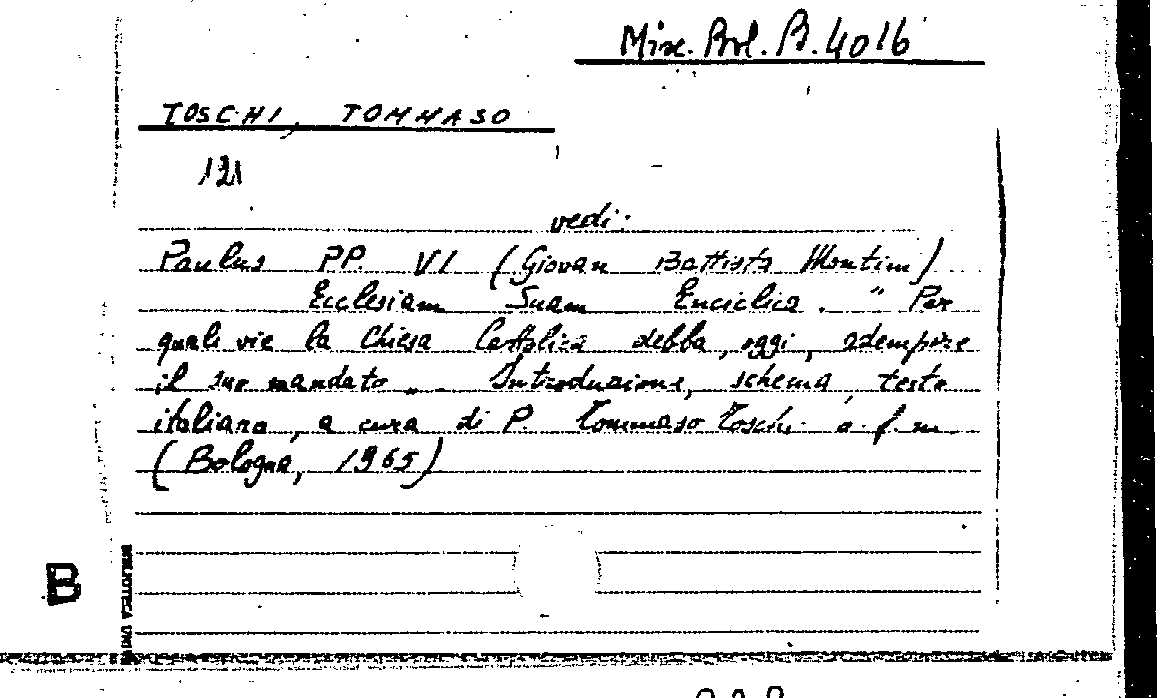 Misc. Bol. B. 4016
TOSCHI, TOMMASO
121
vedi:
Paulus PP. VI (Giovan Battista Montini)
Ecclesiam Suam Enciclica. " Per
quali vie la Chiesa Cattolica debba, oggi, adempiere
il suo mandato „. Introduzione, schema, testo
italiano, a cura di P. Tommaso Toschi o. f. m.
(Bologna, 1965)
B
BIBLIOTECA